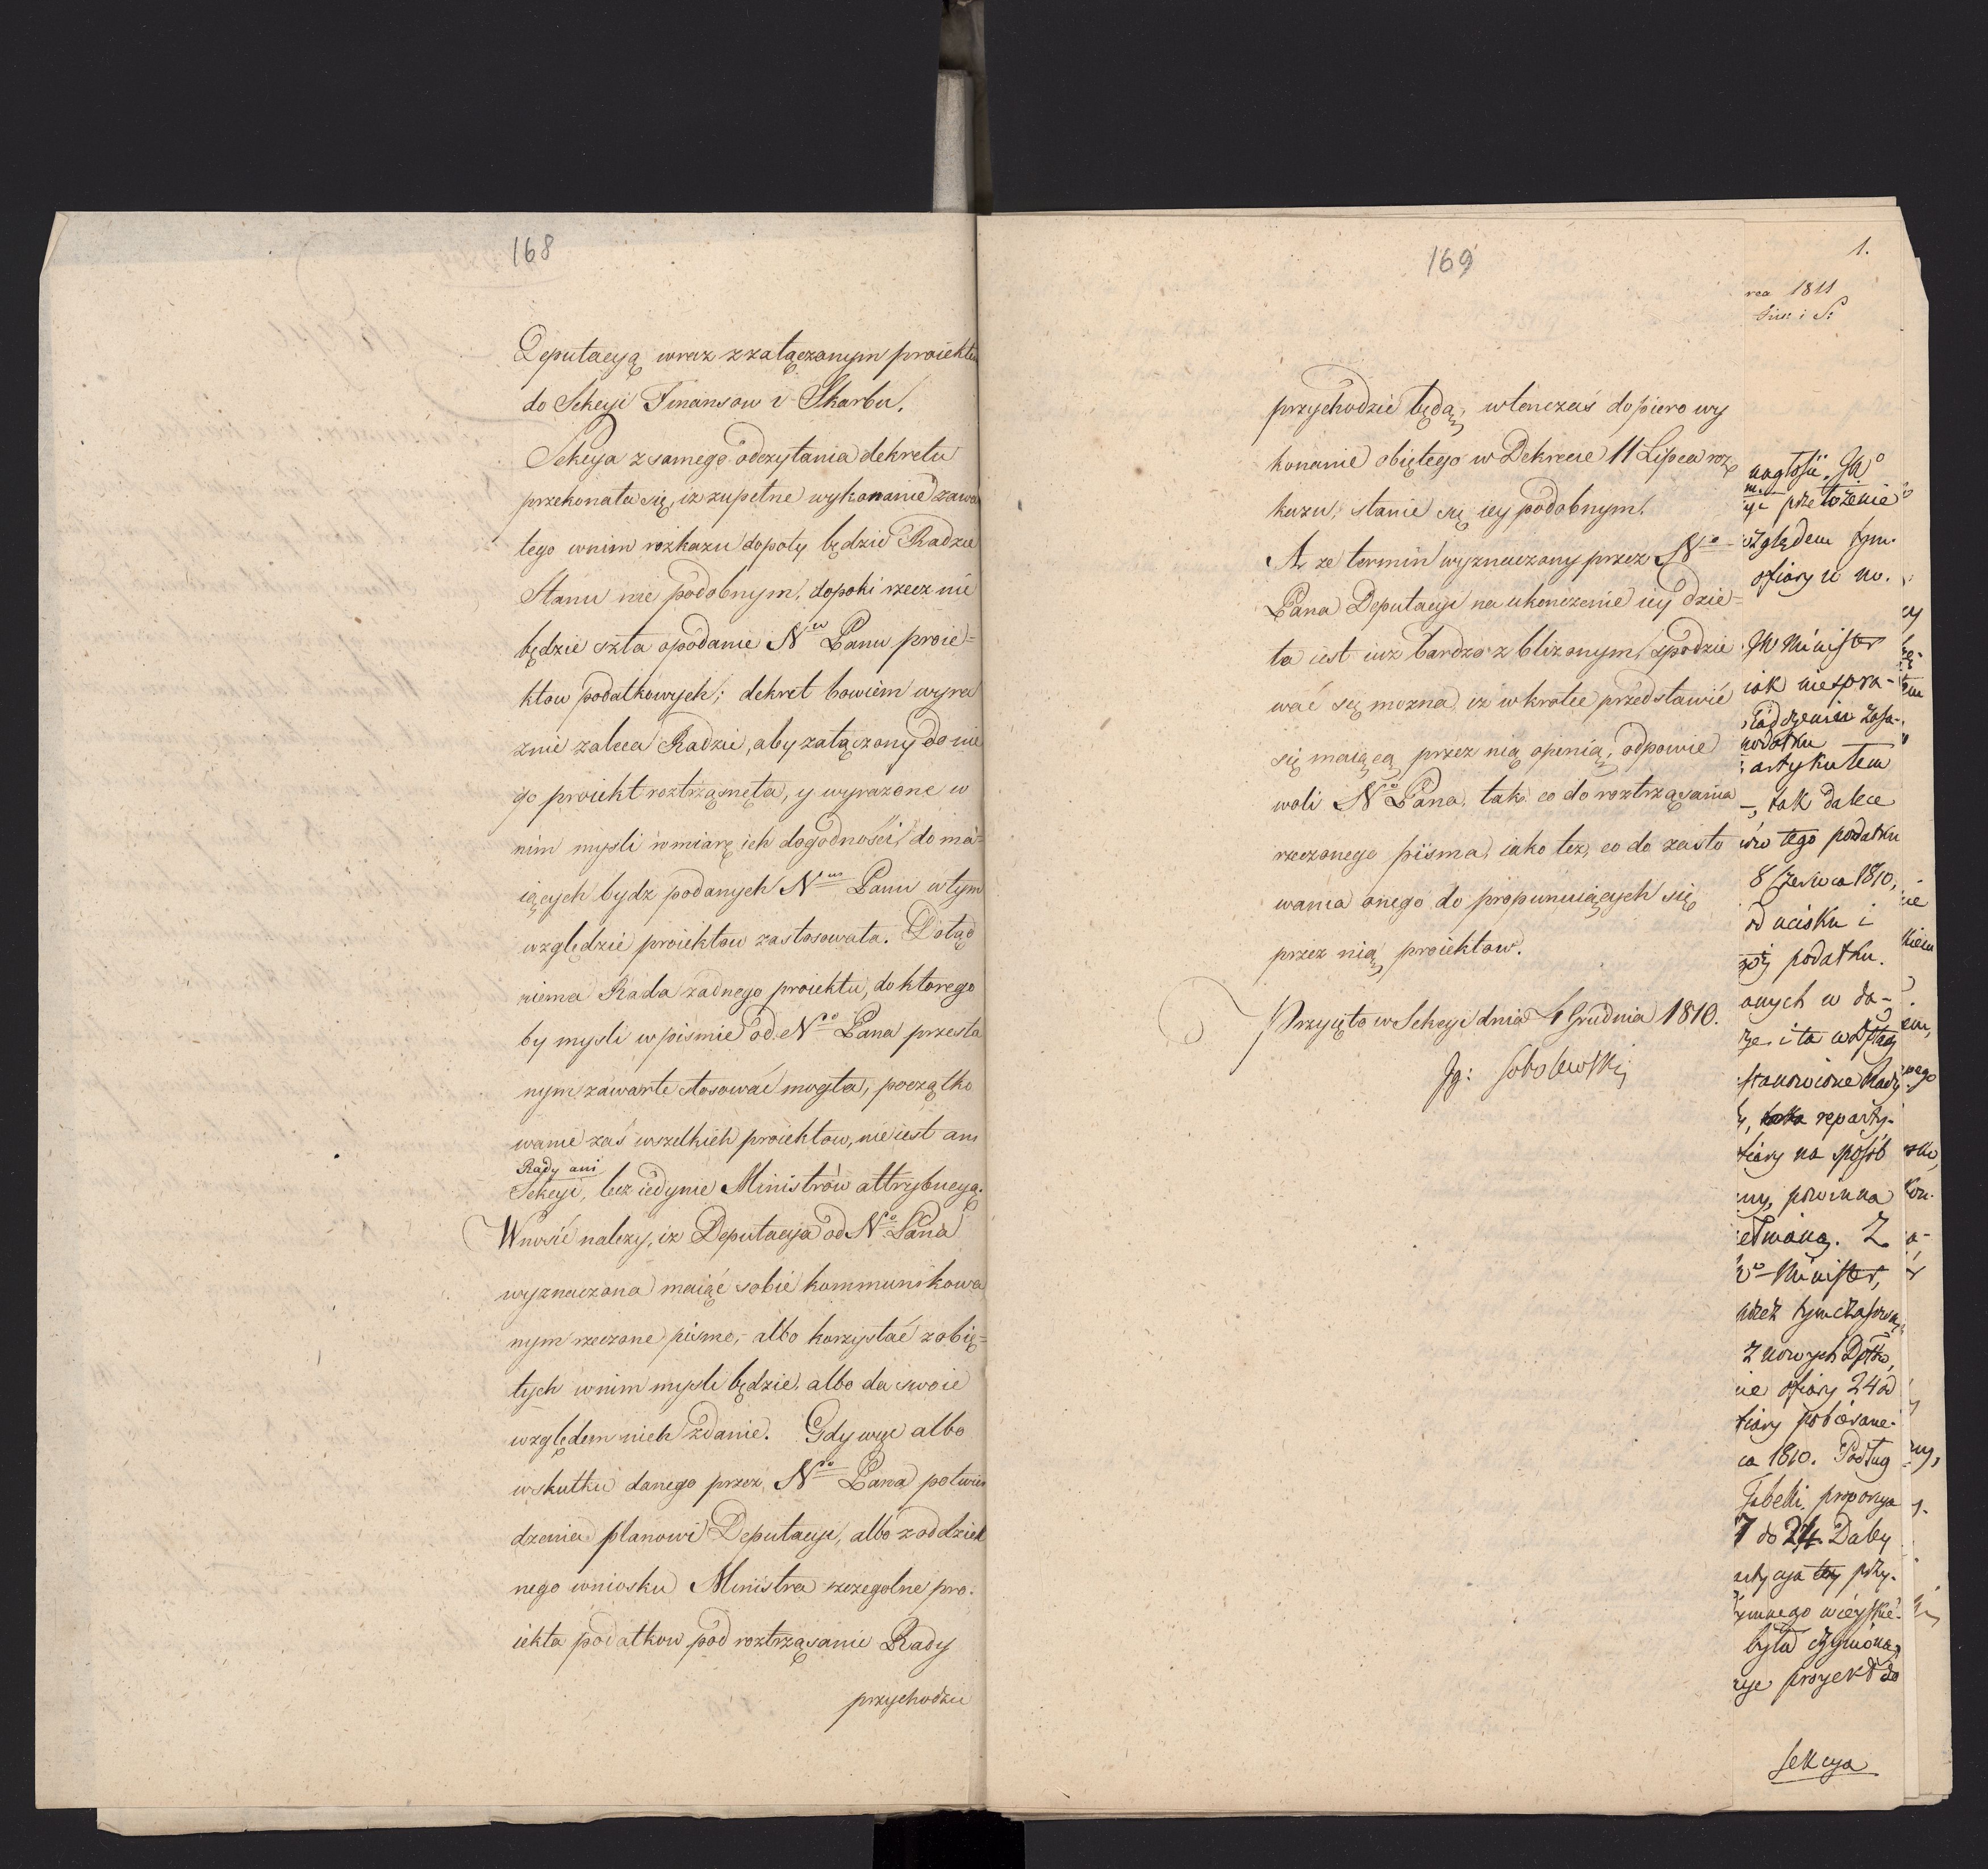 168
Deputacyą wraz z załączonym proiektem
do Sekcyi Finansow i Skarbu.
Sekcya z samego odczytania dekretu
przekonała się, iż zupełne wykonanie zawar
tego w nim rozkazu dopoty będzie Radzie
Stanu nie podobnym, dopoki rzecz nie
będzie szła o podanie N.u Panu proie=
ktow podatkowych; dekret bowiem wyra
znie zaleca Radzie, aby załączony do nie
go proiekt roztrząsnęła, y wyrażone w
nim mysli w miarę ich dogodności do ma=
iących bydz podanych N.u Panu w tym
względzie proiektow zastosowała. Dotąd
niema Rada żadnego proiektu, do ktorego
by mysli w pismie od N.o Pana przesła
nym zawarte stosować mogła; początko
wanie zaś wszelkich proiektow, nie iest ani
Rady ani
Sekcyi, lecz iedynie Ministrów attrybucyą.
Wnosić należy, iż Deputacya od N.o Pana
wyznaczona maiąc sobie kommunikowa
nym rzeczone pismo, albo korzystać z obię=
tych w nim mysli będzie, albo da swoie
względem nich zdanie. Gdy więc albo
w skutku danego przez N.o Pana potwier
dzenia planowi Deputacyi, albo z oddziel
nego wniosku Ministra szczegolne pro=
iekta podatkow pod roztrząsanie Rady
przychodzić
169
przychodzić będą, wtenczaś dopiero wy
konanie obiętego w Dekrecie 11 Lipca roz
kazu, stanie się iey podobnym.
A że termin wyznaczony przez N.o
Pana Deputacyi na ukończenie iey dzie=
ła iest iuż bardzo zbliżonym, spodzie
wać się można, iż w krotce przedstawić
się maiącą przez nią opinią, odpowie
woli N.o Pana, tak co do roztrząsania
rzeczonego pisma, iako też, co do zasto
wania onego do proponuiących się
przez nią proiektow.
Przyięto w Sekcyi dnia 4 Grudnia 1810.
Ig: Sobolewski
1.
rca 1811
Sku: i S:
przełożenie
względem tym
ofiary u no.
JW Minister
iak niespra-
podatku
artykułem
tak dalece
ów tego podatku
8 Czerwca 1810,
od ucisku i
podatku.
onych w do-
reparty-
fiary na sposób
powinna
Z
Minister,
przez tymczasowy
z nowych Dptów
ofiary 24 a
fiary pobierane-
ca 1810. Podług
Tabelli, proporcya
7 do 24. Daley
artycya przy-
ymnego wieyskie-
była czyniona,
proyekt do
Sekcya